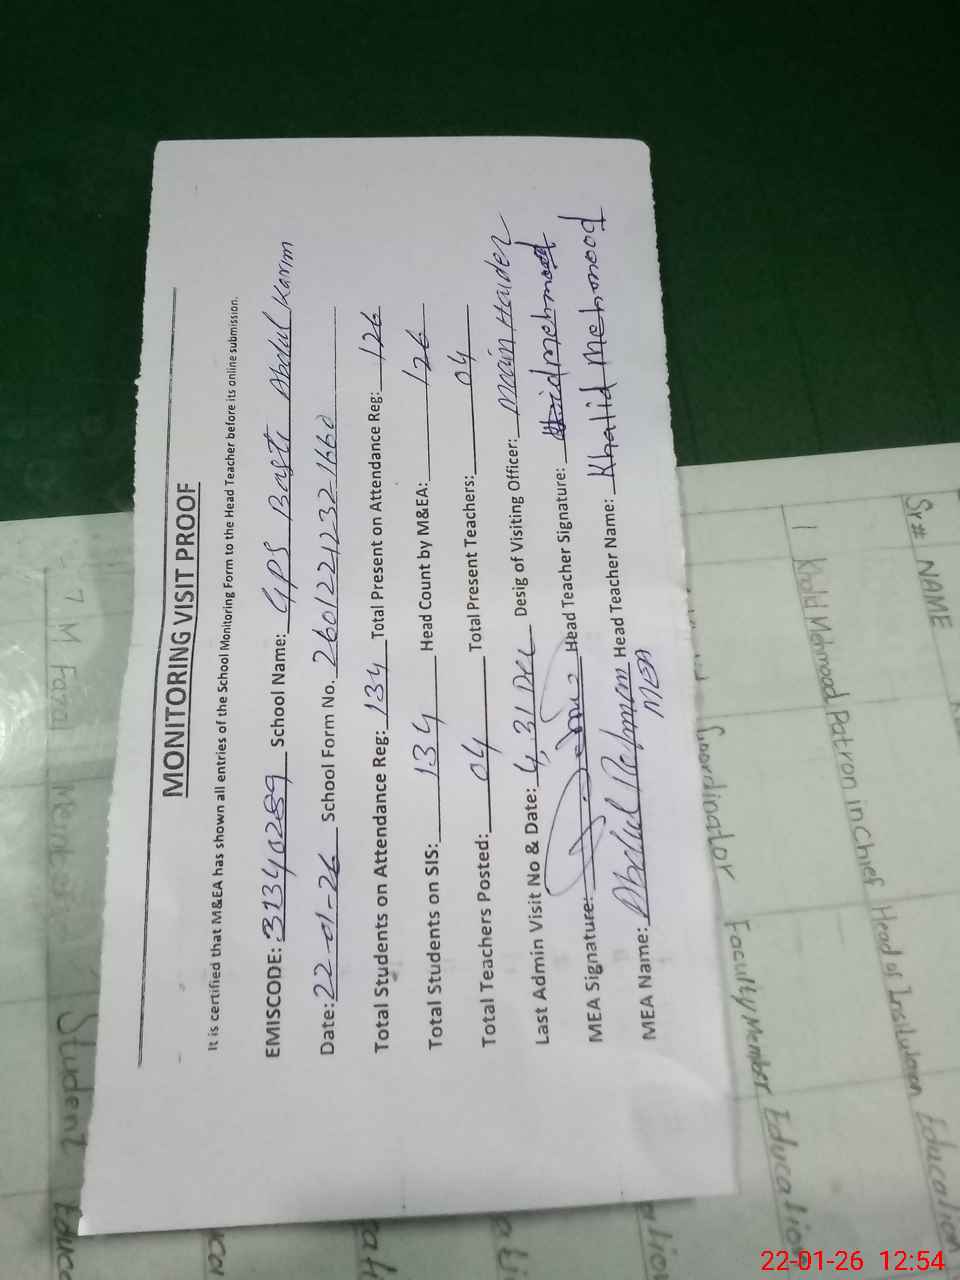 MONITORING VISIT PROOF
It is certified that M&EA has shown all entries of the School Monitoring Form to the Head Teacher before its online submission.
EMISCODE: 31340289 School Name: GPS Basti Abdul Karim
Date: 22-01-26 School Form No. 26012212321660
Total Students on Attendance Reg: 134 Total Present on Attendance Reg: 126
Total Students on SIS: 134 Head Count by M&EA: 126
Total Teachers Posted: 04 Total Present Teachers: 04
Last Admin Visit No & Date: 4, 31 Dec Desig of Visiting Officer: Main Haider
MEA Signature: Head Teacher Signature:
MEA Name: Abdul Rehman Head Teacher Name: Khalid Mehmood
MEA
Sr# NAME
1 Khalid Mehmood Patron in Chief Head of Institutuion Education
Coordinator Faculty Member Educationa
7 M Fazal
Student Educa
22-01-26 12:54